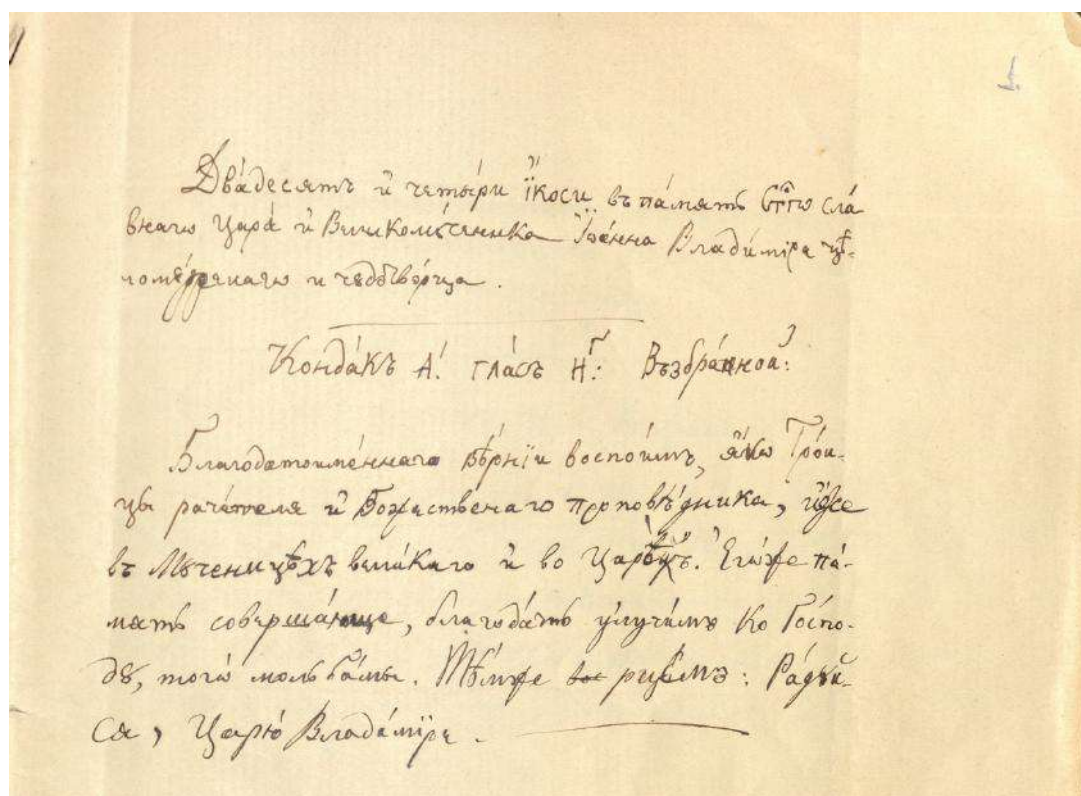 Два́десятъ и҆ четы́ри і҆́коси въ па́мять ст҃гѡ сла́
внагѡ Царѧ̀ и҆ Великомꙋ́ченика Іѡа́нна Влади́мїра цѣ-
ломꙋ́дренагѡ и чꙋдотво́рца.
Конда́къ А҃. гла́съ И҃: Възбра́нной:
Благодатоиме́ннаго вѣ́рнїи воспои́мъ, ꙗ҆́кѡ Тро́и-
цы рачи́телѧ и҆ Боже́ственаго проповѣ́дника, и҆́же
въ Мꙋ́ченицѣхъ вели́каго и҆ во Царѣ́хъ. Егѡ́же па́-
мѧть соверша́юще, благода́ть улꙋчи́мъ ко Го́спо-
дꙋ, тогѡ̀ мольба́ми. Тѣ́мже рцѣ́мъ: Ра́дꙋй-
сѧ, Царю̀ Влади́мїре.